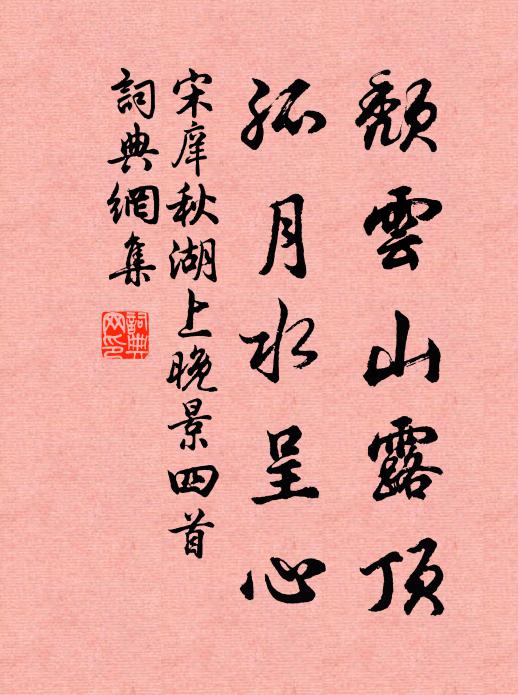 頽雲山露頂
孤月水呈心
宋庠秋湖上晚景四首
詞典網集
詞典
网印